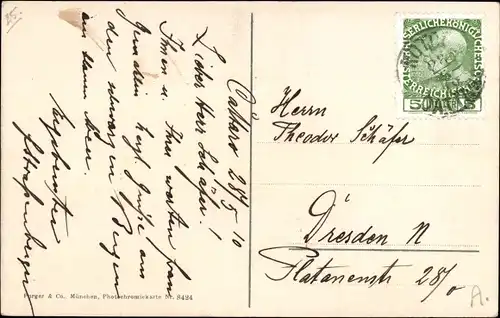 15.
Cattaro 28/5 10
Lieber Herr Schäfer!
Ihnen u. Ihrer werten Frau
Gemahlin herzl. Grüße aus
den schwarzen Bergen
aus
Ergebenster
KAISERLICHE KÖNIGLICHE
ÖSTERREICHISCHE
5
Herrn
Theodor Schäfer
Dresden N
Platanenstr 28/0
A.
Purger & Co., München, Photochromiekarte Nr. 8424